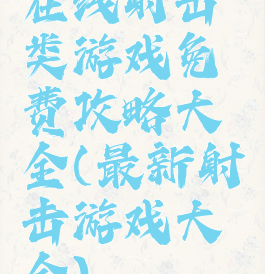 在线射击
类游戏免
费攻略大
全(最新射
击游戏大
全)